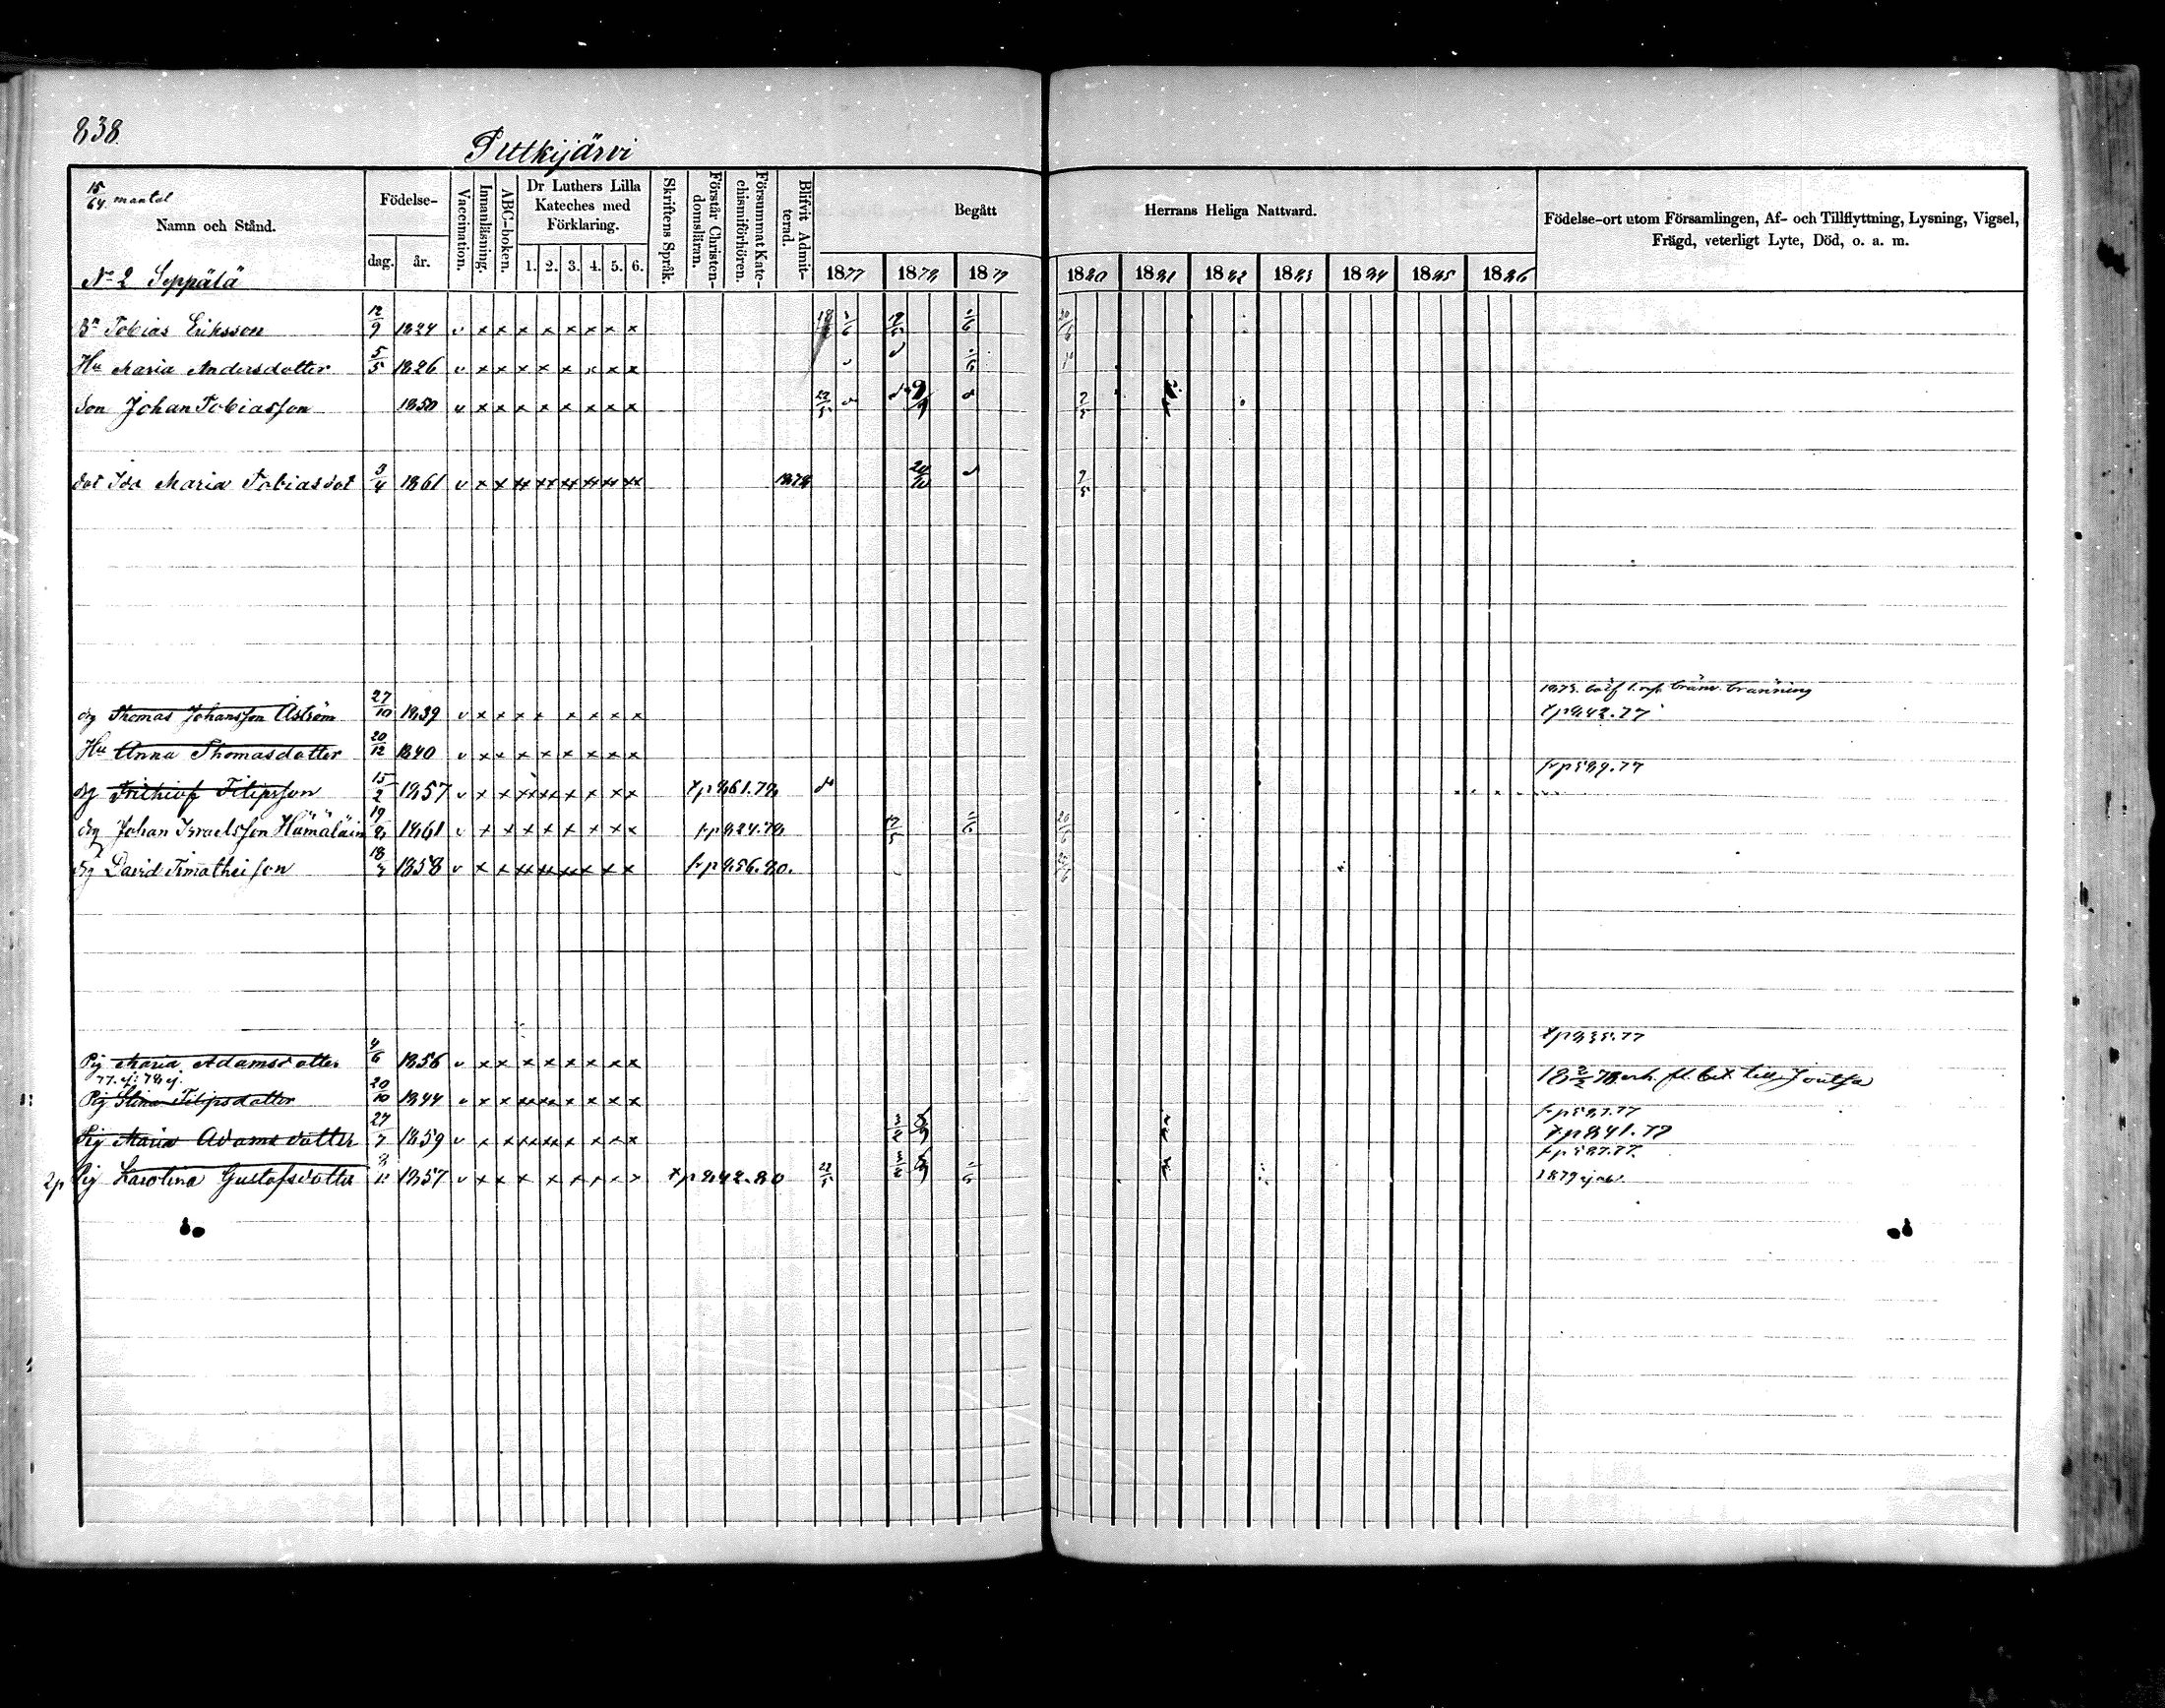 838.
Puttkijärvi
15/64. mantal
Namn och Stånd.
Födelse-
dag.
år.
Vaccination.
Innanläsning.
ABC-boken.
Dr Luthers Lilla
Kateches med
Förklaring.
1. 2. 3. 4. 5. 6.
Skriftens Språk.
Förstår Christen-
domsläran.
Försummat Kate-
chismiförhören.
Blifvit Admit-
terad.
Begått
Herrans Heliga Nattvard.
1877 1878 1879 1880 1881 1882 1883 1884 1885 1886
Födelse-ort utom Församlingen, Af- och Tillflyttning, Lysning, Vigsel,
Frägd, veterligt Lyte, Död, o. a. m.
No 2 Seppälä
Bn Tobias Eriksson 12/9 1824 v x x x x x x x x
Hu Maria Andersdotter 5/5 1826 v x x x x x x x x
Son Johan Tobiasson 1850 v x x x x x x x x 22/5
dot Ida Maria Tobiasdot 3/4 1861 v x x xx xx xx xx xx xx 1878 20/10 7/5
drg Thomas Johansson Åström 27/10 1839 v x x x x x x x x
bränv. bränning
t p 842.77
Hu Anna Thomasdotter 20/12 1840 v x x x x x x x x
fr p 589.77
drg Frithiof Filipsson 15/2 1857 v x x xx xx x x x x t p 861.78
drg Johan Israelsson Hämäläin 19/8 1861 v x x x x x x x x fr p 824.78
drg David Timatheisson 1858 v x x xx xx xx x x x fr p 856.80.
t p 835.77
Pig Maria Adamsdotter 4/6 1856 v x x x x x x x x
77. ej. 78 ej.
Pig Stina Filipsdotter 20/10 1844 v x x xx xx x x x x
18 2/2 78 erh. fl. bet. till Joutsa
fr p 587.77
Pig Maria Adamsdotter 27/7 1859 v x x xx xx x x x x
t p 841.78
fr p 587.77.
2p Pig Karolina Gustafsdotter 1857 v x x x x x x x x t p 842.80
1879